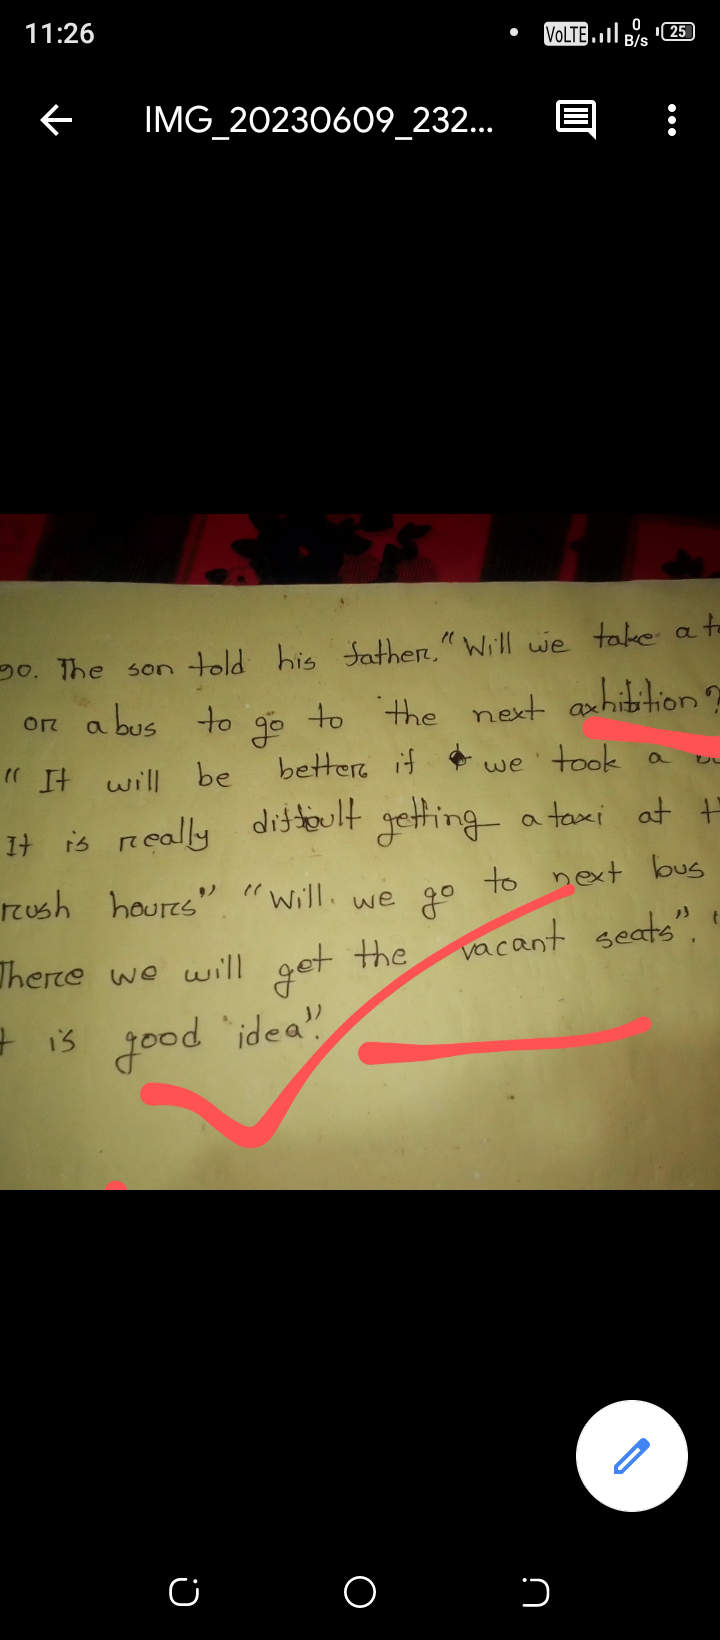 11:26
VoLTE 0 B/s 25
IMG_20230609_232...
go. The son told his father, "Will we take a
or a bus to go to the next axhibition?
" It will be better if we took a
It is really difficult getting a taxi at
rush hours". "Will we go to next bus
There we will get the vacant seats". "
is good idea".